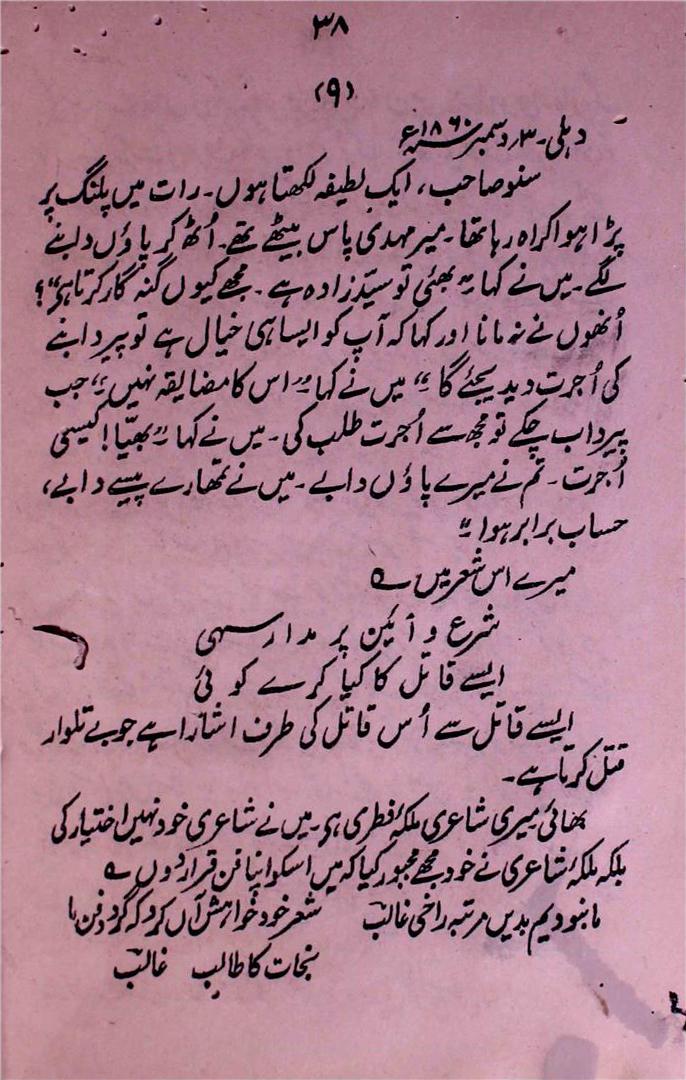 ۳۸
(۹)
دہلی۔ ۳؍ دسمبر ۱۸۶۰ء
سنو صاحب، ایک لطیفہ لکھتا ہوں۔ رات میں پلنگ پر
پڑا ہوا کراہ رہا تھا۔ میر مہدی پاس بیٹھے تھے۔ اُٹھ کر پاؤں دابنے
لگے۔ میں نے کہا "بھئی تو سیّد زادہ ہے۔ مجھے کیوں گنہ گار کرتا ہے"؟
اُنھوں نے نہ مانا اور کہا کہ آپ کو ایسا ہی خیال ہے تو پیر دابنے
کی اُجرت دیدیجئے گا" میں نے کہا "اس کا مضایقہ نہیں" جب
پیر داب چکے تو مجھ سے اُجرت طلب کی۔ میں نے کہا "بھیّا! کیسی
اُجرت۔ تم نے میرے پاؤں دابے۔ میں نے تمھارے پیسے دابے،
حساب برابر ہوا"
میرے اس شعر میں ؎
شرع و آئین پر مدار سہی
ایسے قاتل کا کیا کرے کوئی
ایسے قاتل سے اُس قاتل کی طرف اشارا ہے جو بے تلوار
قتل کرتا ہے۔
بھائی میری شاعری ملکۂ فطری ہی۔ میں نے شاعری خود نہیں اختیار کی
بلکہ ملکۂ شاعری نے خود مجھے مجبور کیا کہ میں اسکو اپنا فن قرار دوں ؎
ما نبودیم بدیں مرتبہ راضی غالبؔ شعر خود خواہش آں کرد کہ گردد فن ما
نجات کا طالب غالبؔ